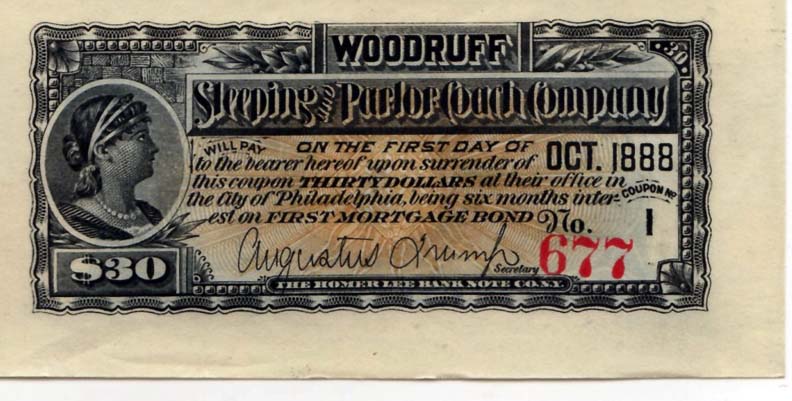 WOODRUFF
30
Sleeping and Parlor Coach Company
WILL PAY ON THE FIRST DAY OF OCT. 1888
to the bearer hereof upon surrender of
this coupon THIRTY DOLLARS at their office in
the City of Philadelphia, being six months inter-
est on FIRST MORTGAGE BOND No. 677
COUPON No. 1
Augustus Trump
Secretary
$30
THE HOMER LEE BANK NOTE CO. N.Y.